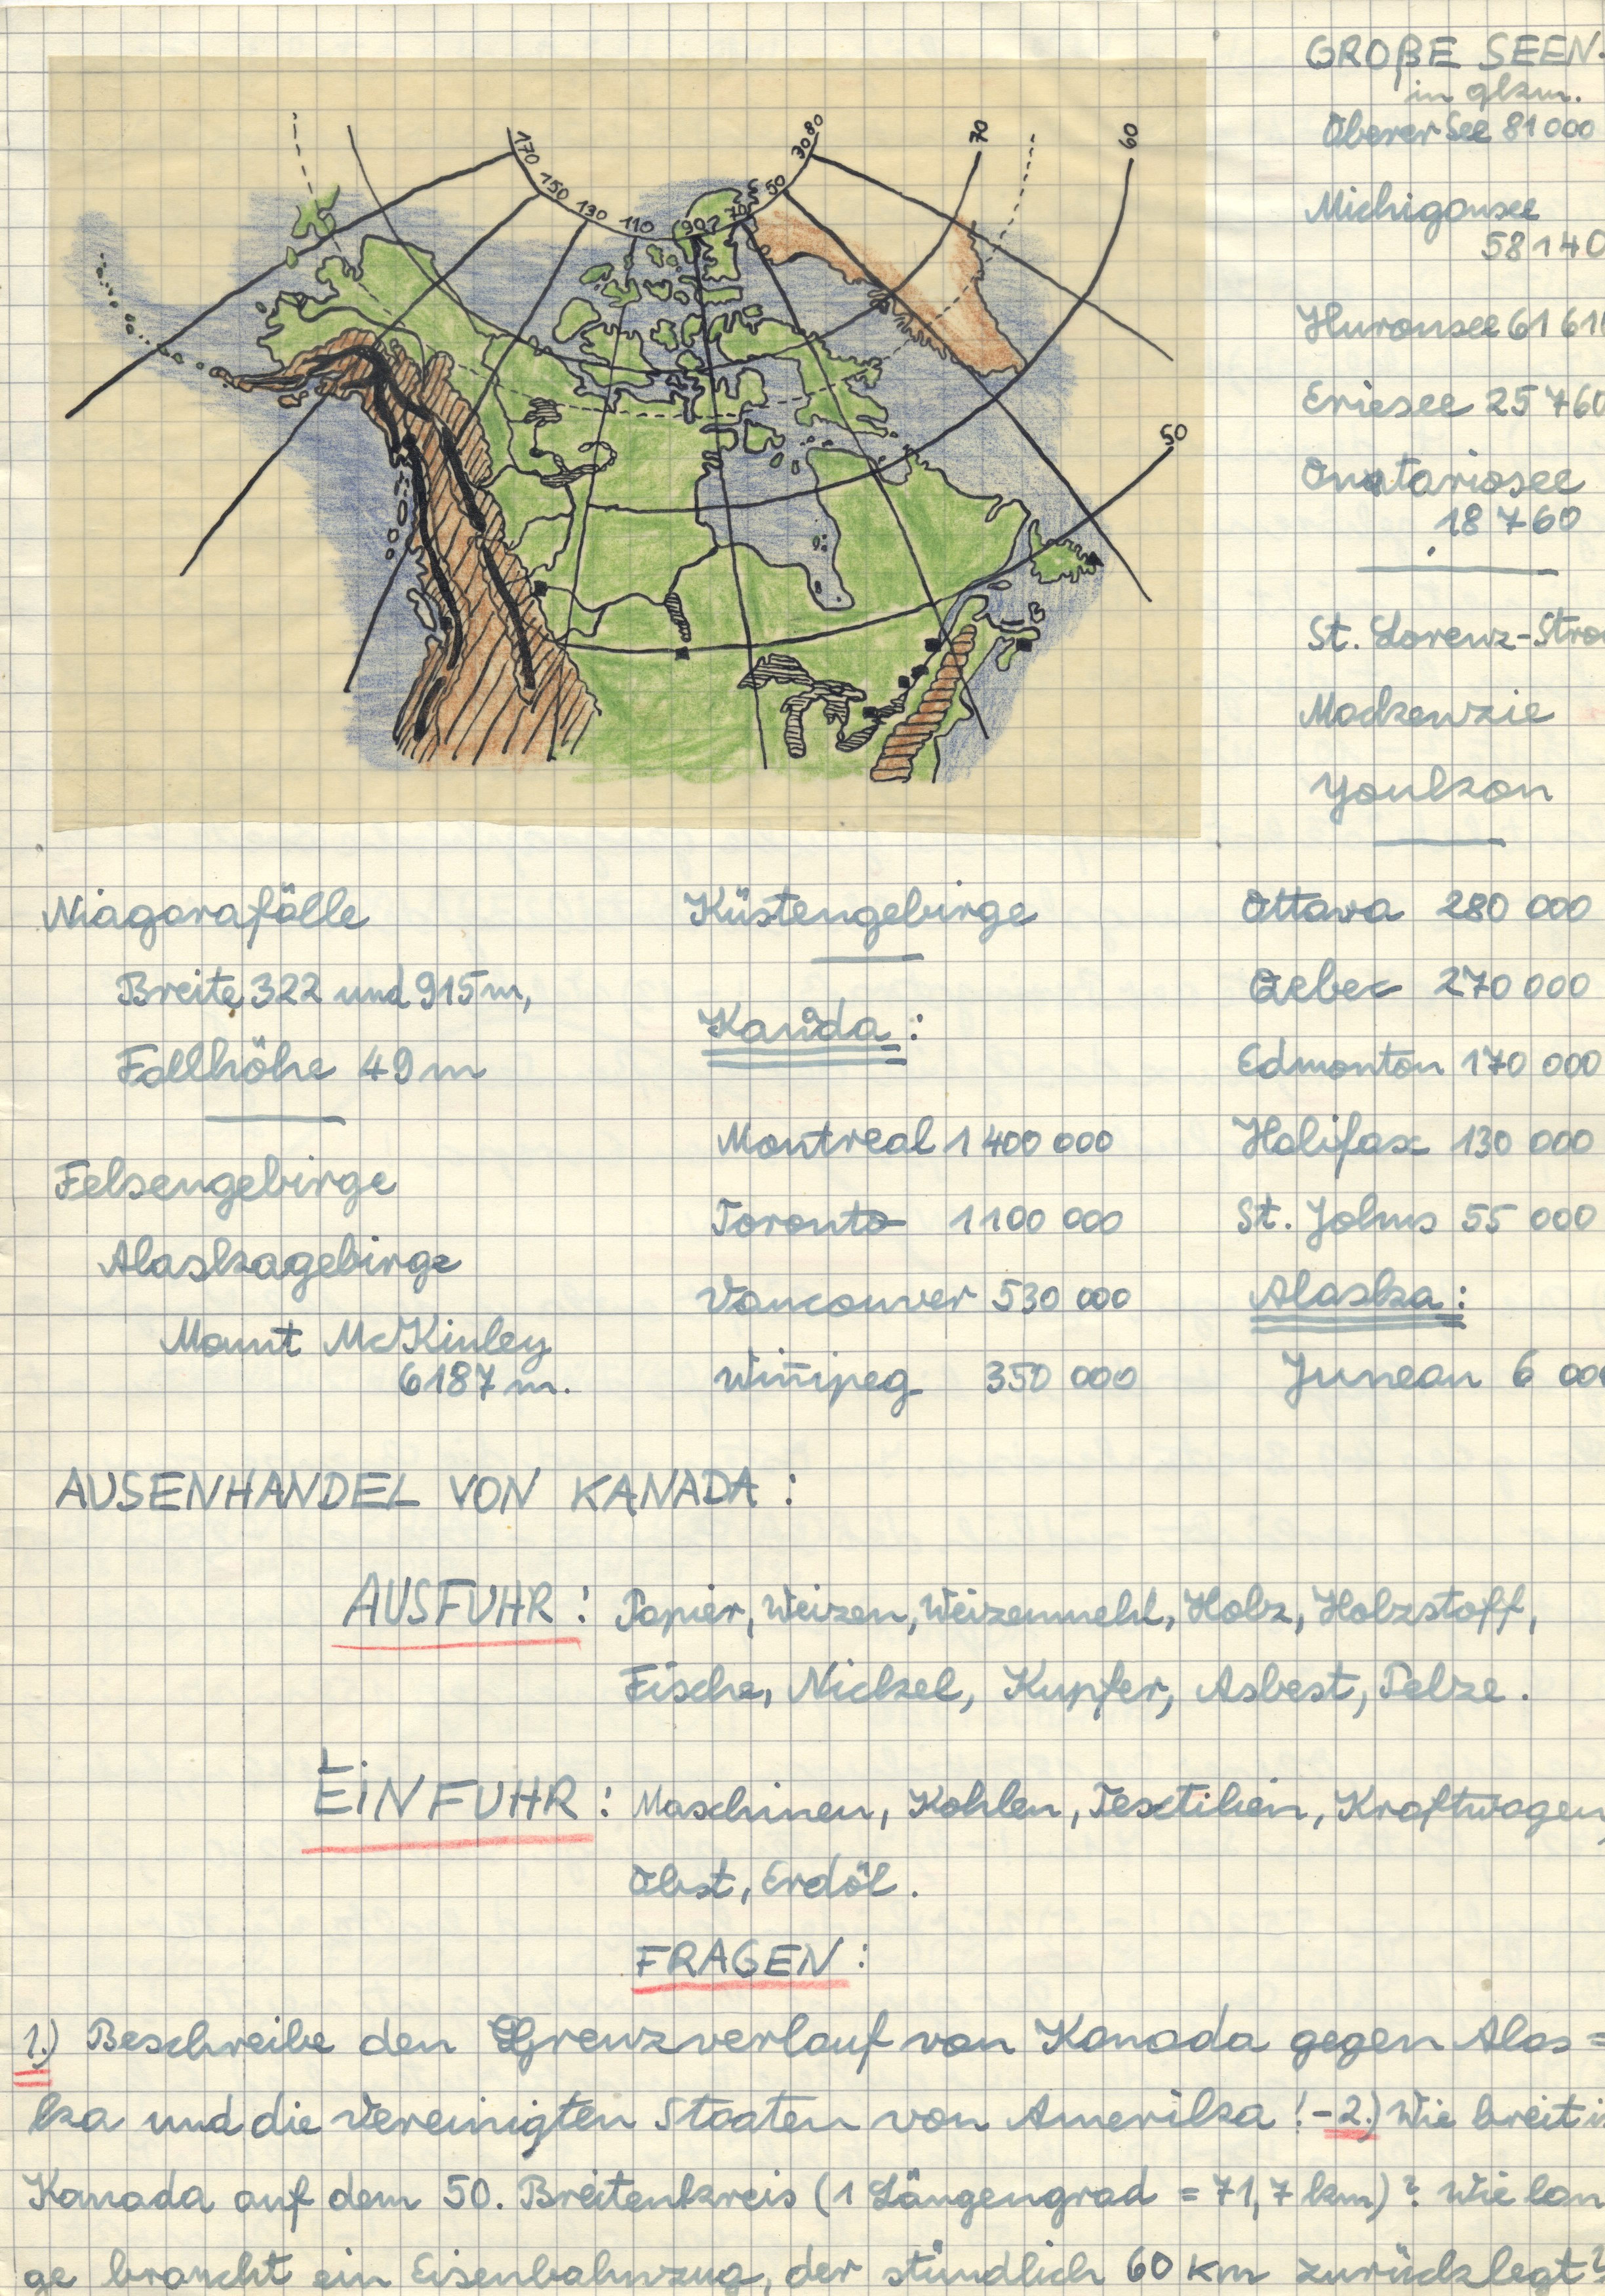 170
150
130
110
90?
70
50
30
80
70
60
50
GROßE SEEN.
in qkm.
Oberer See 81 000
Michigansee
58 140
Huronsee 61 61
Eriesee 25 760
Onatariosee
18 760
St. Lorenz-Stro
Mackenzie
Youkon
Niagarafälle
Breite 322 und 915 m,
Fallhöhe 49 m
Felsengebirge
Alaskagebirge
Mount McKinley
6187 m.
Küstengebirge
Kanada:
Montreal 1 400 000
Toronto 1 100 000
Vancouver 530 000
Winnipeg 350 000
Ottava 280 000
Qebec 270 000
Edmonton 170 000
Halifax 130 000
St. Johns 55 000
Alaska:
Juneau 6 000
AUSENHANDEL VON KANADA:
AUSFUHR: Papier, Weizen, Weizenmehl, Holz, Holzstoff,
Fische, Nickel, Kupfer, Asbest, Pelze.
EiNFUHR: Maschinen, Kohlen, Textilien, Kraftwagen,
Obst, Erdöl.
FRAGEN:
1.) Beschreibe den Grenzverlauf von Kanada gegen Alas=
ka und die Vereinigten Staaten von Amerika! - 2.) Wie breit i
Kanada auf dem 50. Breitenkreis (1 Längengrad = 71,7 km)? Wie lan
ge braucht ein Eisenbahnzug, der stündlich 60 km zurücklegt?